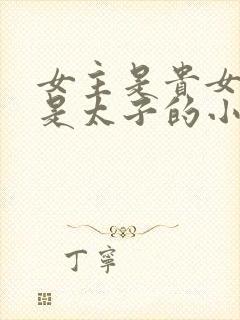 女主是貴女
是太子的小
丁寧